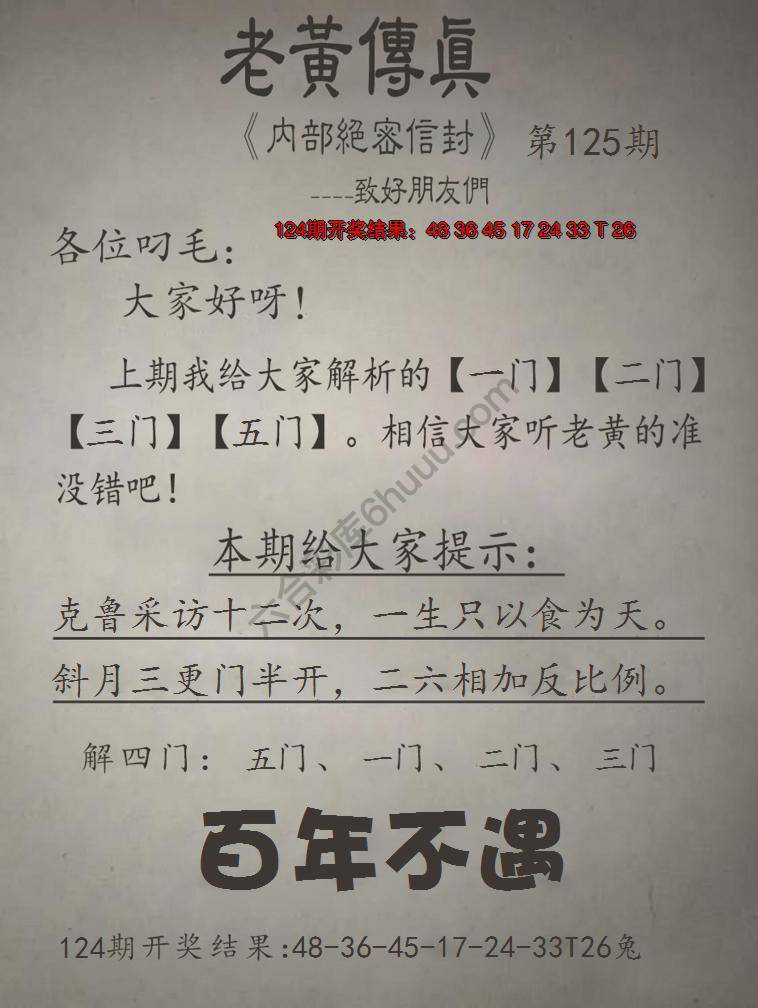 老黃傳眞
《内部絕密信封》 第125期
----致好朋友們
124期开奖结果：48 36 45 17 24 33 T 26
各位叼毛：
大家好呀！
上期我给大家解析的【一门】【二门】
【三门】【五门】。相信大家听老黄的准
没错吧！
六合彩库6huuu.com
本期给大家提示：
克鲁采访十二次，一生只以食为天。
斜月三更门半开，二六相加反比例。
解四门：五门、一门、二门、三门
百年不遇
124期开奖结果:48-36-45-17-24-33T26兔